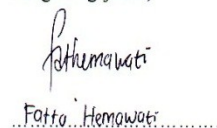 fathemawati
Fatta Hemawati